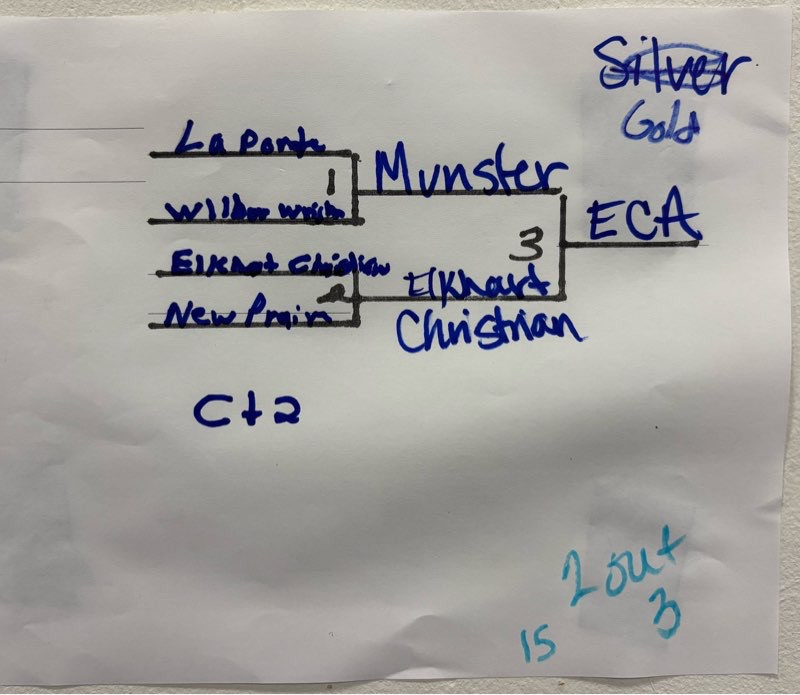 Silver
Gold
La Porte
1
Munster
Wilbur Wright
ECA
3
Elkhart Christian
2
Elkhart
Christrian
New Prairi
Ct2
2 out
3
15